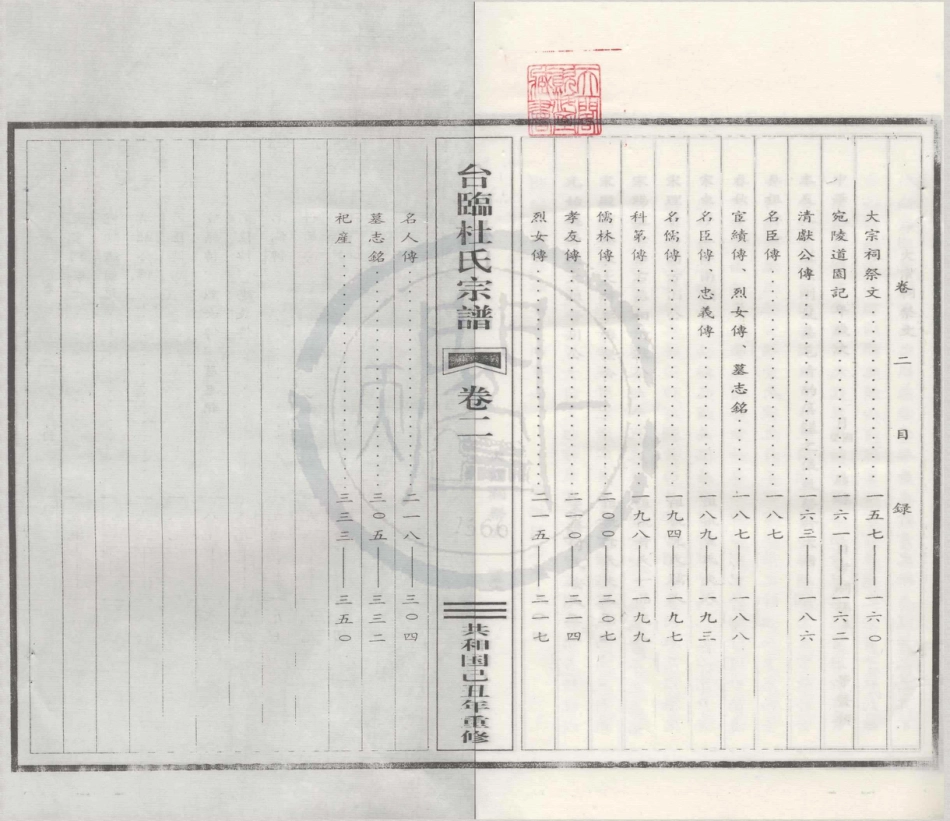 卷二目録
大宗祠祭文 一五七——一六〇
宛陵道園記 一六一——一六二
清獻公傳 一六三——一八六
名臣傳 一八七
宦績傳、烈女傳、墓志銘 一八七——一八八
名臣傳、忠義傳 一八九——一九三
名儒傳 一九四——一九七
科第傳 一九八——一九九
儒林傳 二〇〇——二〇七
孝友傳 二一〇——二一四
烈女傳 二一五——二一七
台臨杜氏宗譜
卷二
共和国己丑年重修
名人傳 二一八——三〇四
墓志銘 三〇五——三三二
祀産 三三三——三五〇